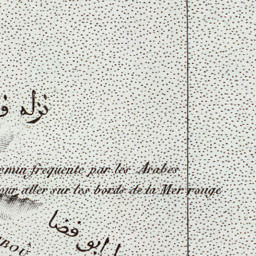 نزله
frequente par les Arabes
pour aller sur les bords de la Mer rouge
ابو فضا